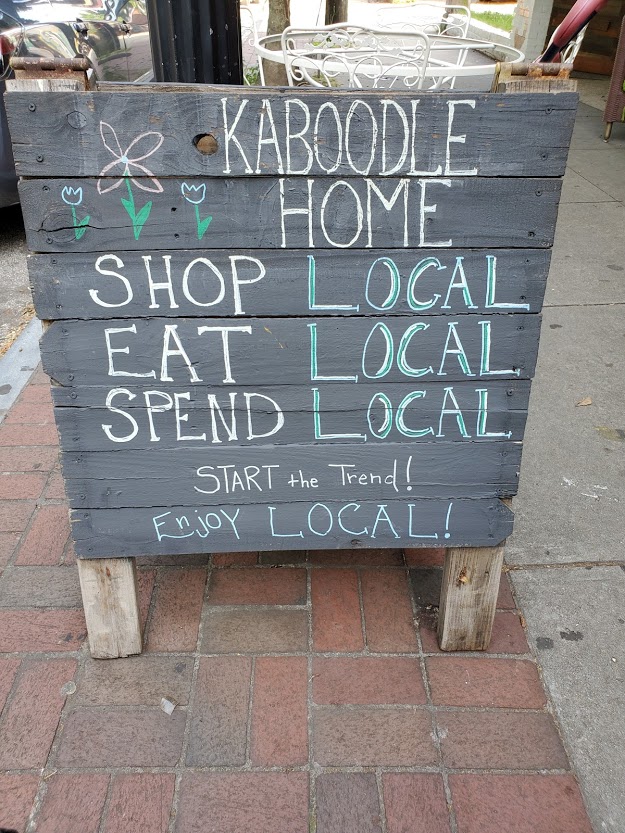 KABOODLE
HOME
SHOP LOCAL
EAT LOCAL
SPEND LOCAL
START the Trend!
EnJOY LOCAL!